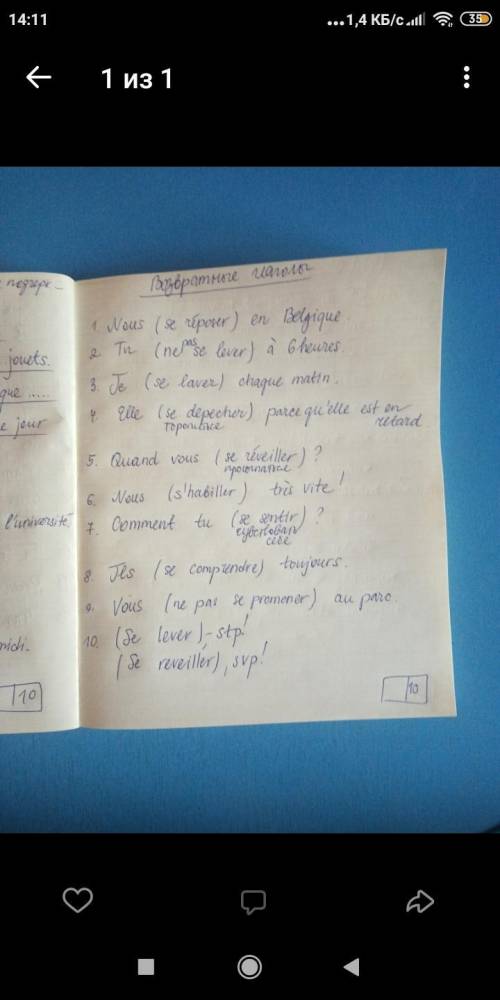 14:11
...1,4 КБ/с
35
1 из 1
jouets.
que .....
e jour
l'université.
midi.
10
Возвратные глаголы
1. Nous (se réposer) en Belgique.
2. Tu (ne pas se lever) à 6 heures.
3. Je (se laver) chaque matin.
4. Elle (se depecher) parce qu'elle est en
торопиться
retard
5. Quand vous (se réveiller) ?
просыпаться
6. Nous (s'habiller) très vite!
7. Comment tu (se sentir) ?
себя
8. Ils (se comprendre) toujours.
9. Vous (ne pas se promener) au parc.
10. (Se lever) - stp!
(Se reveiller), svp!
10